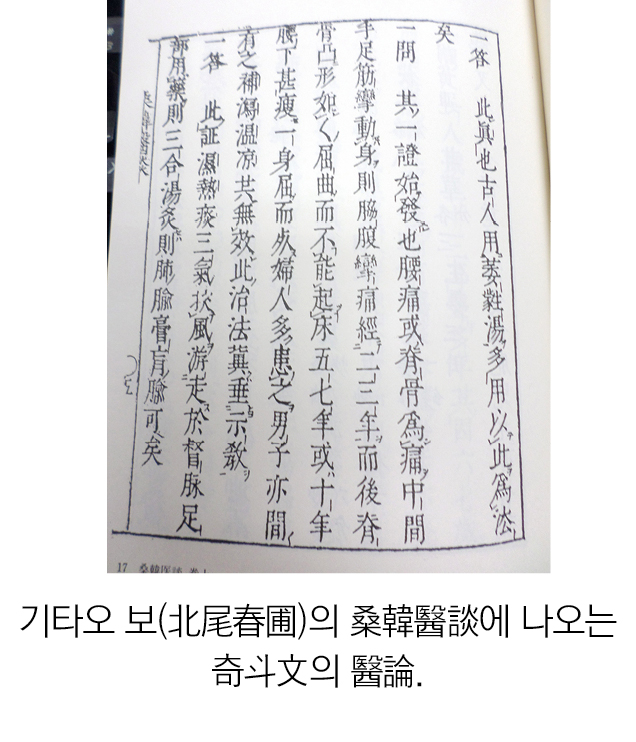 一答 此眞也古人用萎蕤湯多用以此爲法
矣
一問 其一證始發也腰痛或脊骨爲痛中間
手足筋攣動身則脇腹攣痛經二三年而後脊
骨凸形如く屈曲而不能起床五七年或十年
腰下甚痩一身屈而死婦人多患之男子亦間
有之補瀉温凉共無效此治法冀垂示教
一答 此証濕熱痰三氣挾風游走於督脉足
用藥則三合湯灸則肺腧膏肓腧可矣
17 桑韓医談
기타오 보(北尾春圃)의 桑韓醫談에 나오는
奇斗文의 醫論.